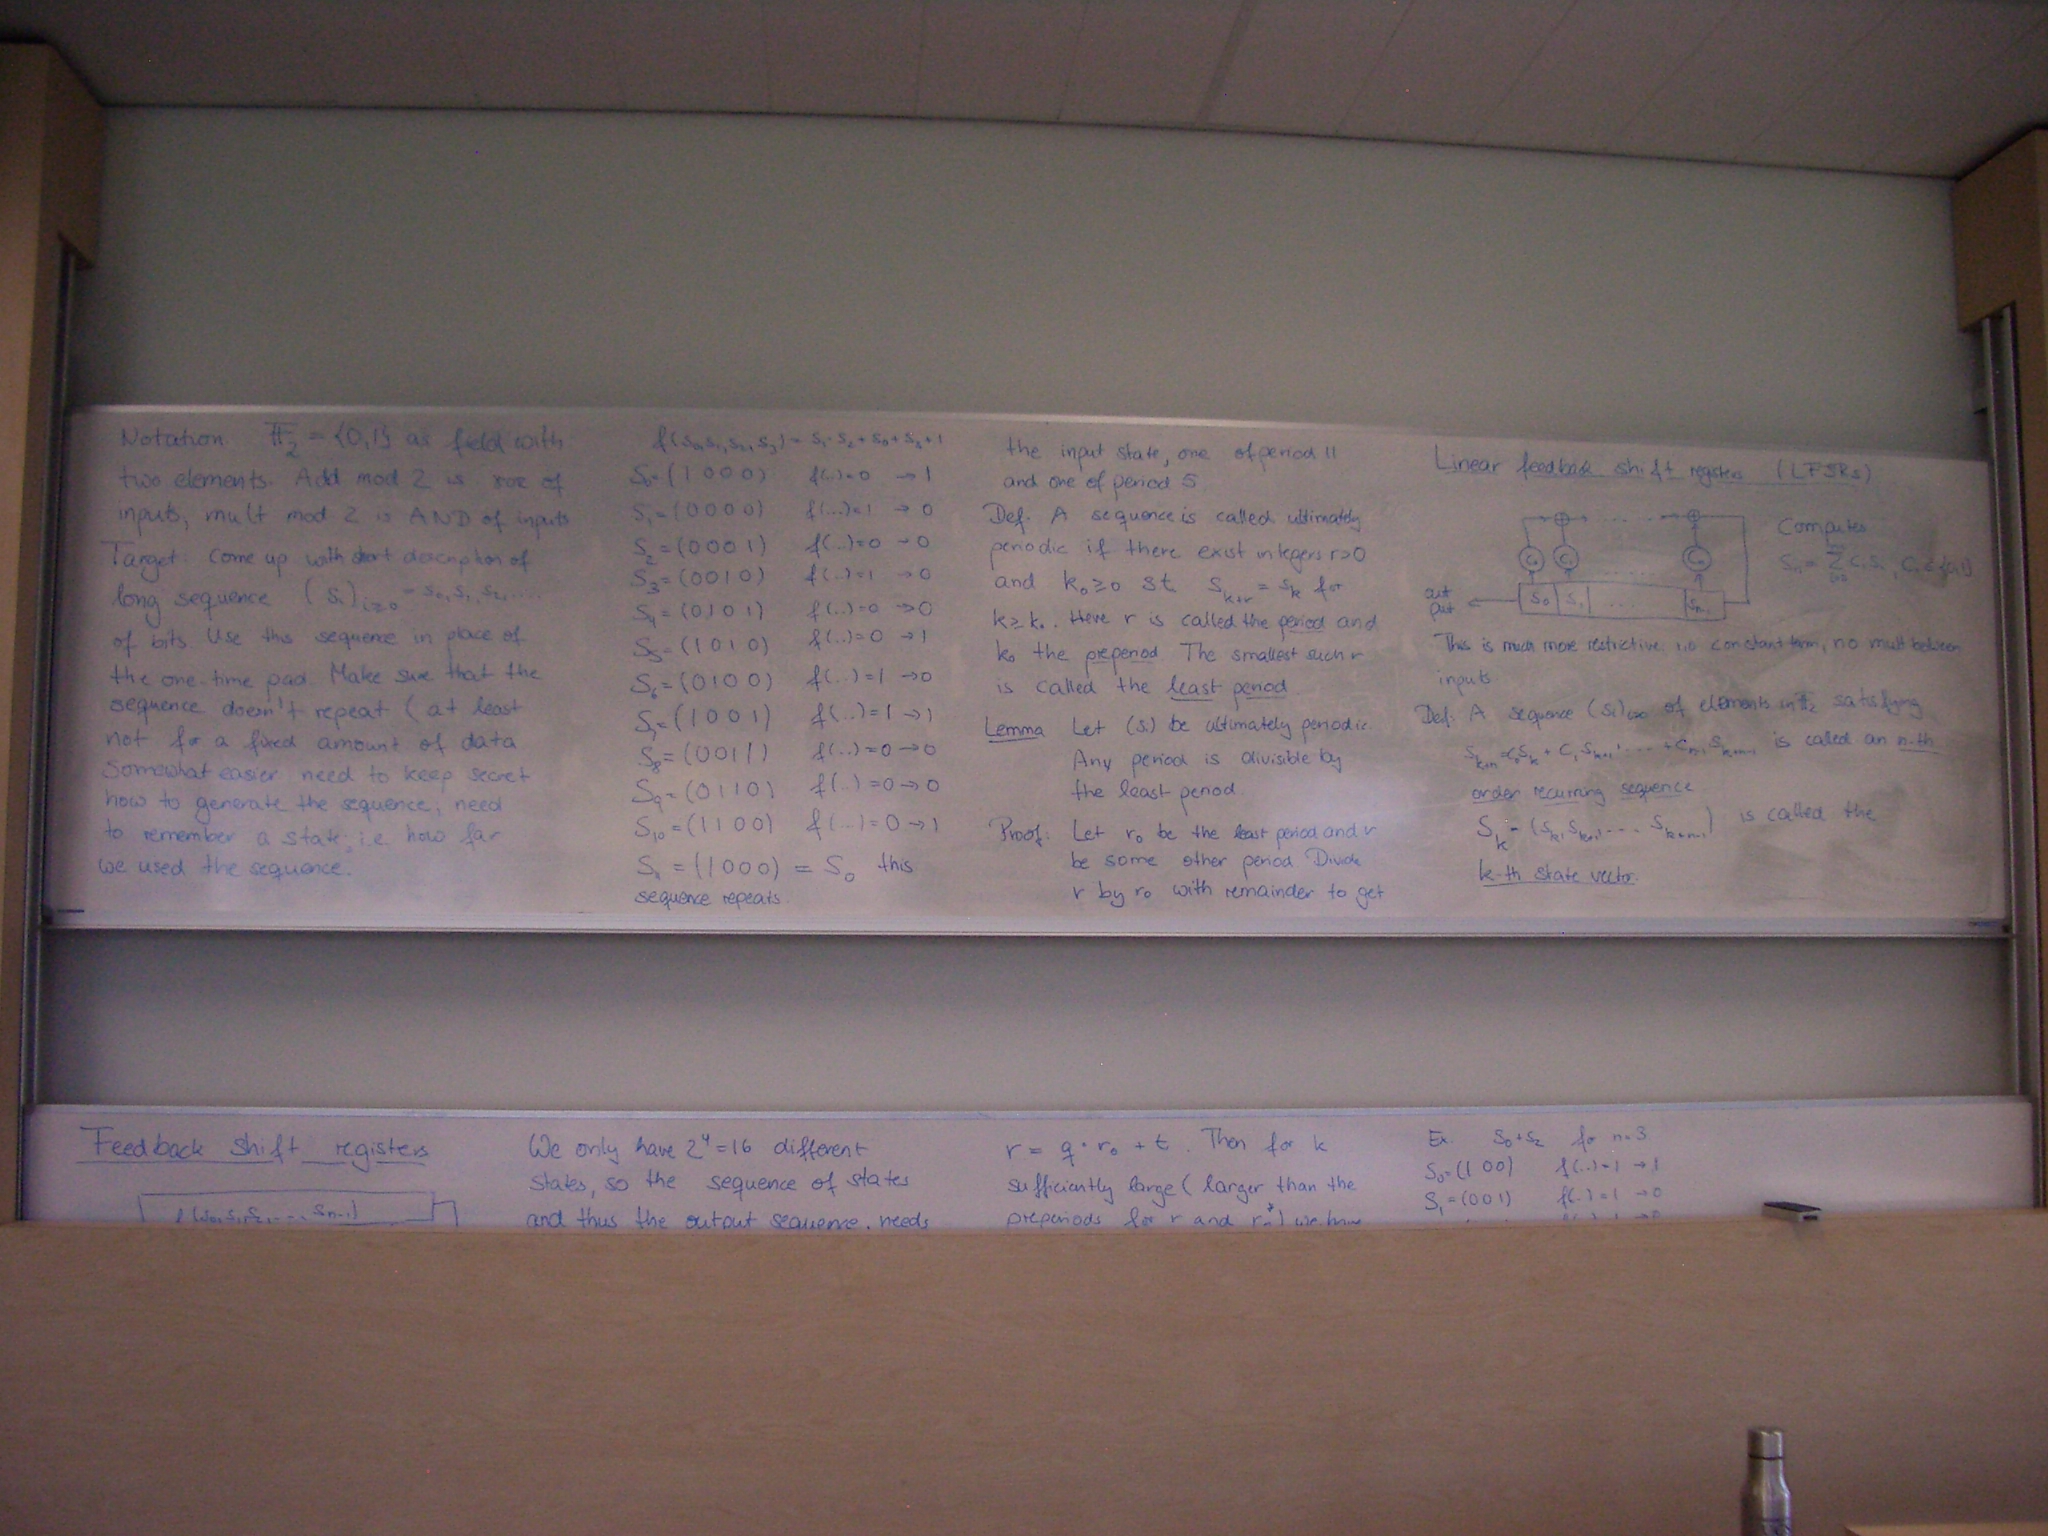 Notation 𝔽₂ = {0,1} as field with
two elements. Add mod 2 is xor of
inputs, mult mod 2 is AND of inputs
Target: Come up with short description of
long sequence (s_i)_{i≥0} = s₀, s₁, s₂, ....
of bits. Use this sequence in place of
the one-time pad. Make sure that the
sequence doesn't repeat (at least
not for a fixed amount of data
Somewhat easier: need to keep secret
how to generate the sequence, need
to remember a state, i.e. how far
we used the sequence.
f(s₀,s₁,s₂,s₃) = s₁·s₂+s₀+s₃+1
S₀=(1000) f(..)=0 → 1
S₁=(0000) f(...)=1 → 0
S₂=(0001) f(..)=0 → 0
S₃=(0010) f(..)=1 → 0
S₄=(0101) f(..)=0 → 0
S₅=(1010) f(..)=0 → 1
S₆=(0100) f(...)=1 → 0
S₇=(1001) f(..)=1 → 1
S₈=(0011) f(..)=0 → 0
S₉=(0110) f(..)=0 → 0
S₁₀=(1100) f(...)=0 → 1
S₁₁=(1000) = S₀ this
sequence repeats.
the input state, one of period 11
and one of period 5.
Def. A sequence is called ultimately
periodic if there exist integers r>0
and k₀≥0 st s_{k+r} = s_k for
k≥k₀. Here r is called the period and
k₀ the preperiod. The smallest such r
is called the least period
Lemma Let (s_i) be ultimately periodic.
Any period is divisible by
the least period.
Proof: Let r₀ be the least period and r
be some other period. Divide
r by r₀ with remainder to get
Linear feedback shift registers (LFSRs)
Computes
out
put
s₀ s₁ ..... s_{n-1}
This is much more restrictive: no constant term, no mult between
inputs.
Def. A sequence (s_i)_{i≥0} of elements in 𝔽₂ satisfying
s_{k+n}=c₀s_k + c₁s_{k+1}+.... +c_{n-1}s_{k+n-1} is called an n-th
order recurring sequence
S_k = (s_k, s_{k+1}, ... s_{k+n-1}) is called the
k-th state vector.
Feedback shift registers
f(s₀,s₁,s₂,..., s_{n-1})
We only have 2⁴=16 different
states, so the sequence of states
and thus the output sequence, needs
r = q·r₀ + t. Then for k
sufficiently large (larger than the
preperiods for r and r₀) we have
Ex. s₀+s₂ for n=3
S₀=(100) f(..)=1 → 1
S₁=(001) f(..)=1 → 0